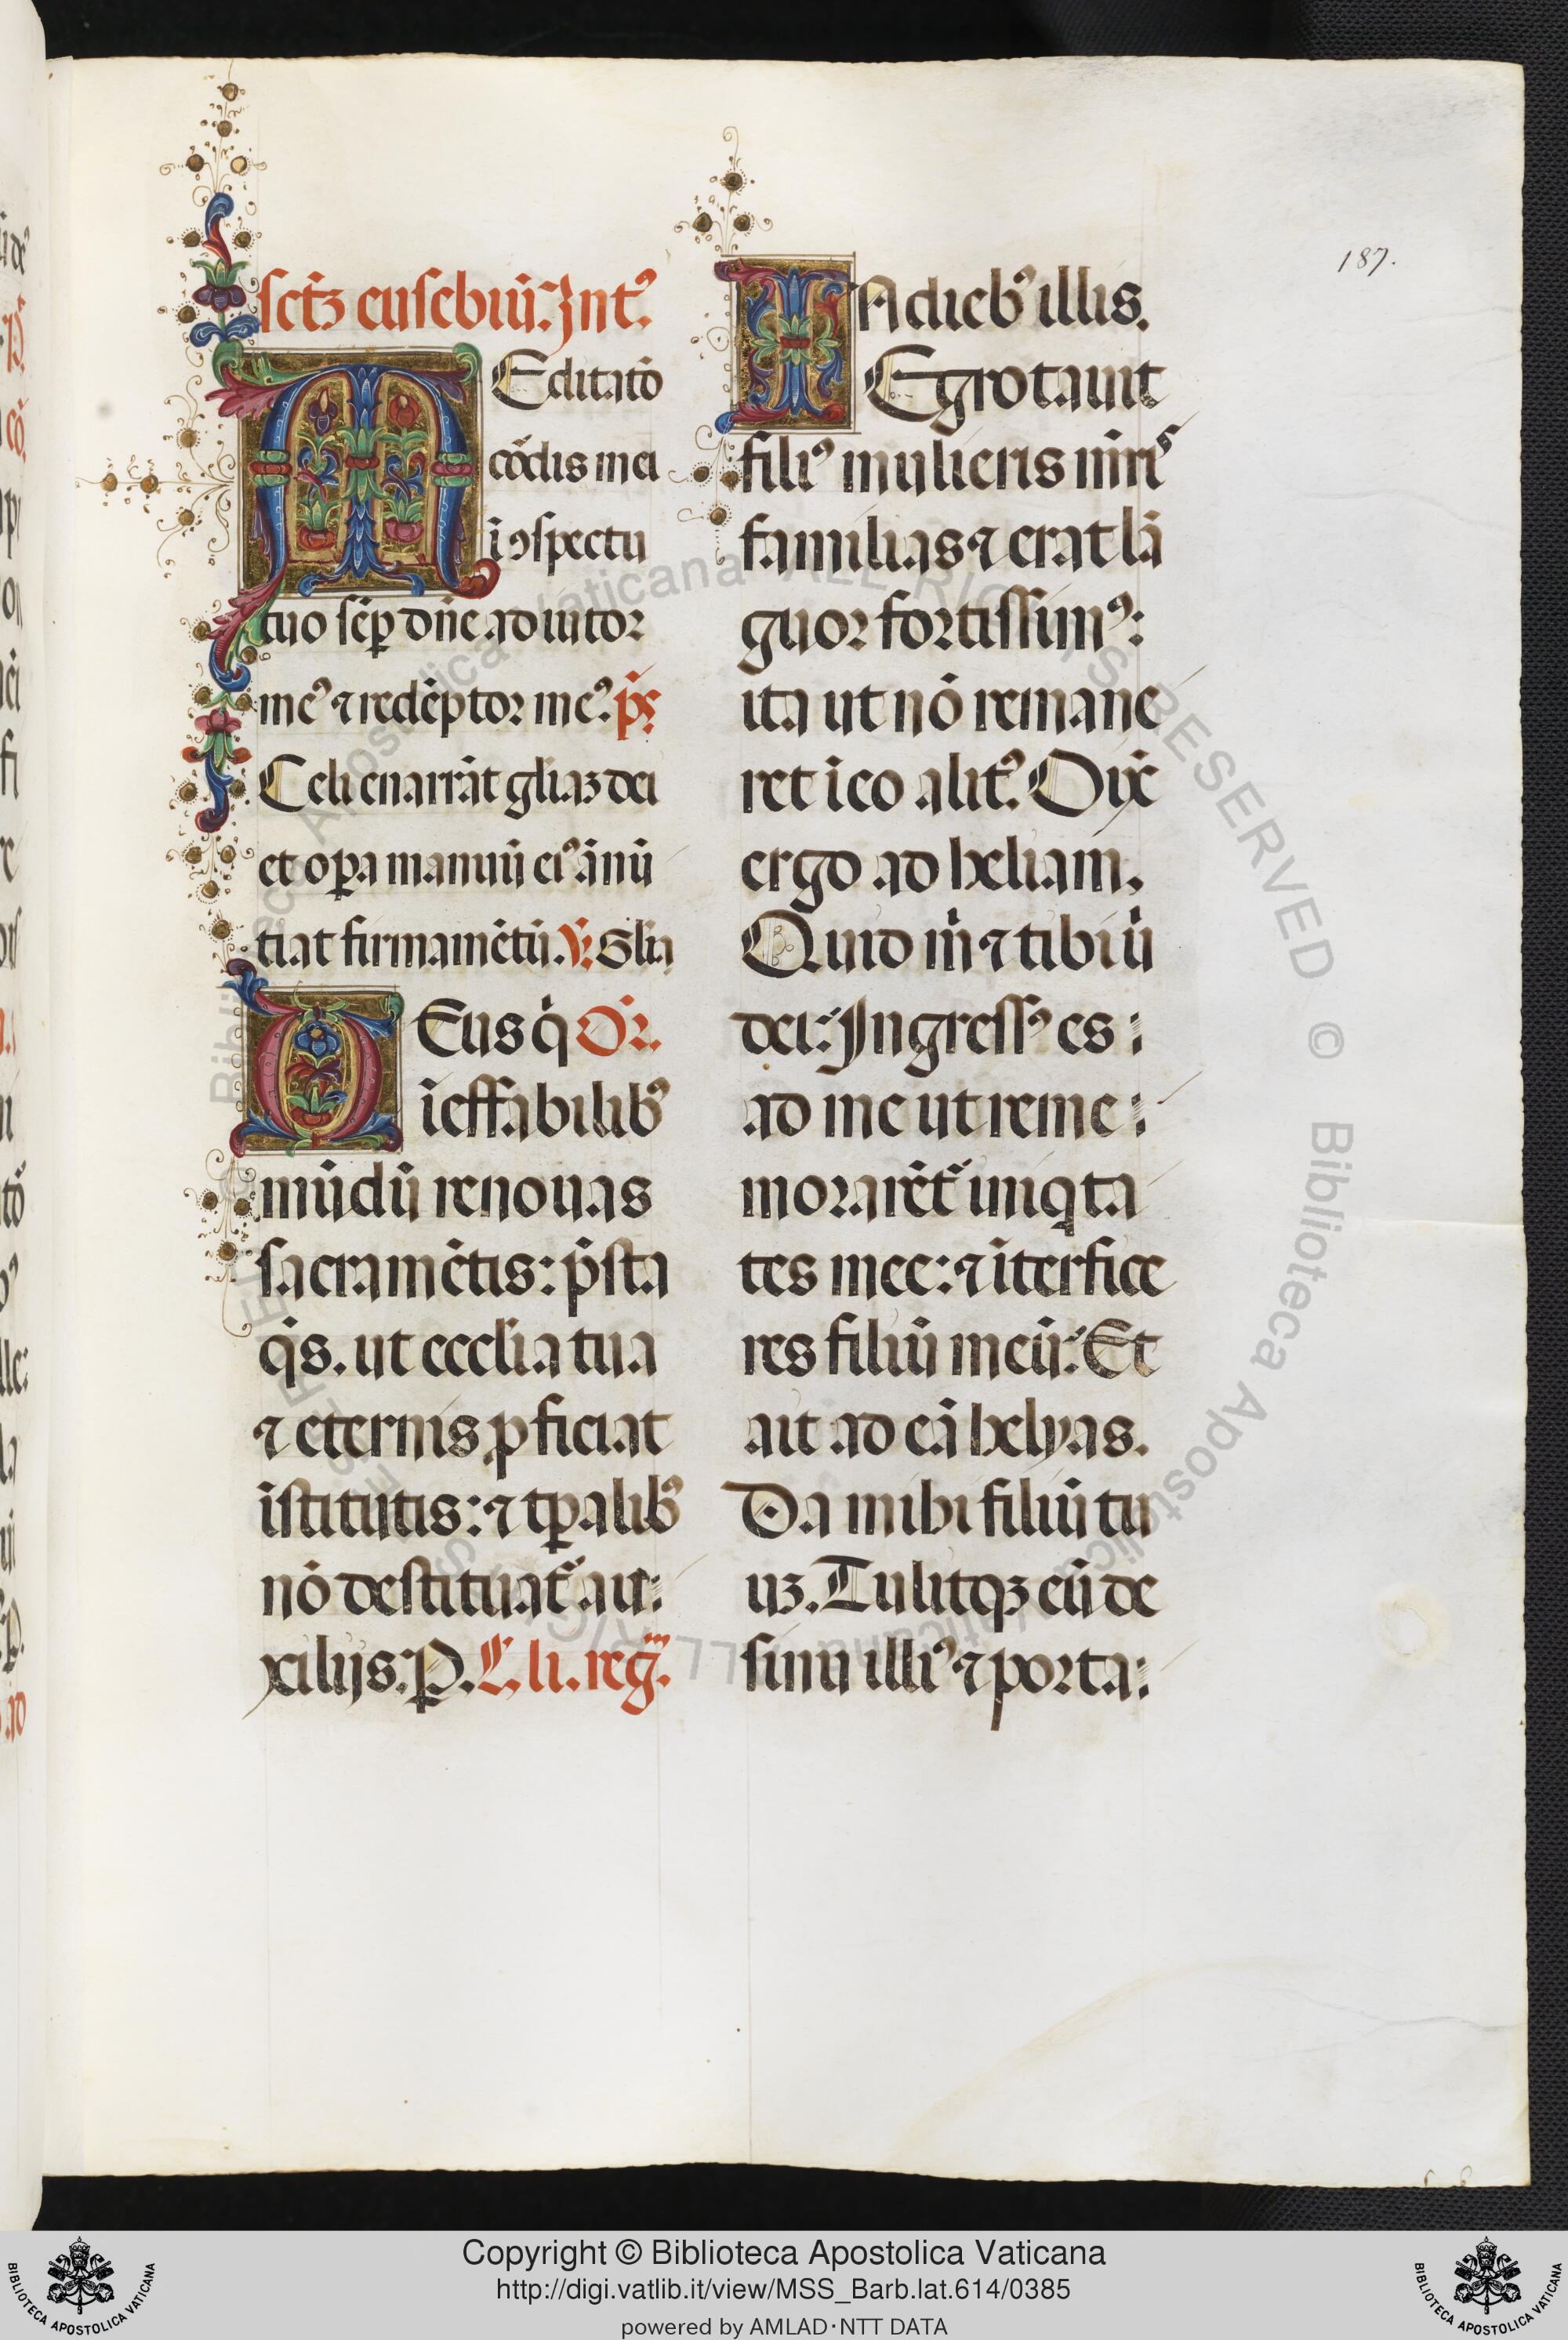 187.
sctꝫ eusebiū: Int᷒
MEditatō
cōdis mei
ī ꝯspectu
tuo sēꝑ dn̄e adiutor
me᷒ ⁊ redēptor me᷒. p̄s
Celi enarrāt gl̄iaꝫ dei
et oꝑa manuū ei᷒ ānū
tiat firmamētū. ℣. Gl̄ia
DEus q̇ Or̄.
ieffabilib᷒
mūdū renouas
sacramētis: p̄sta
q̄s. ut eccl̄ia tua
⁊ eternis ꝓficiat
īstitutis: ⁊ tꝑalib᷒
nō destituat᷑ au:
xilijs: P. L. li. reg̃.
IN dieb᷒ illis.
Egrotauit
fili᷒ mulieris mr̄is
familias ⁊ erat lā
guor fortissim᷒:
ita ut nō remane
ret ī eo alit᷒. Dix̄
ergo ad heliam.
Quid m̄ ⁊ tibi ū
dei: Ingress᷒ es:
ad me ut reme:
morarēt᷑ iniq̇ta
tes mee: ⁊ īterfice
res filiū meū: Et
ait ad eā helyas.
Da mihi filiū tu
uꝫ. Tulitqꝫ eū de
sinu illi᷒ ⁊ porta:
Biblioteca Apostolica Vaticana ALL RIGHTS RESERVED ©
Copyright © Biblioteca Apostolica Vaticana
http://digi.vatlib.it/view/MSS_Barb.lat.614/0385
powered by AMLAD·NTT DATA
BIBLIOTECA APOSTOLICA VATICANA
BIBLIOTECA APOSTOLICA VATICANA